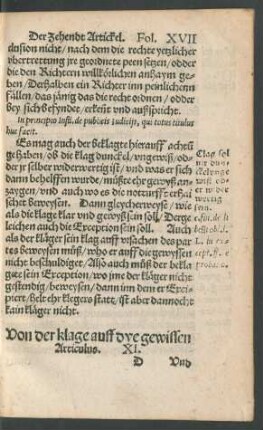 Der Zehendt Artickel. Fol. XVII
clusion nicht / nach dem die rechte yetzlicher
vbertrettung jre geordnete peen setzen / odder
die den Richtern willkörlichen anhaym ge-
ben / Derhalben ein Richter inn peinlichenn
fällen / das jänig das die recht ordnen / odder
bey sich befyndet / erkent und außspricht.
In principio Insti. de publicis Iudiciis, qui totus titulus
huc facit.
Es mag auch der beklagte hierauff achtũ
gehaben / ob die klag dunckel / vngewiß / od-
der jr selber widderwertig ist / vnd was er sich
dann behelffen würde / müßte ehr gewyß an-
zaygen / vnd auch wo es die notturfft erhai-
schet beweysen. Dann gleycherweyse / wie
als die klage klar vnd gewyß sein soll / Derge
leichen auch die Exception sein soll. Auch
als der kläger sein klag auff vrsachen des par
tes beweysen müß / wo er auff die gewyssen
nicht beschuldiget / Also auch müß der bekla
gte sein Exception / wo jme der kläger nicht
gestendig / beweysen / dann inn dem er Exci-
piert / helt ehr klegers statt / ist aber dannocht
kain kläger nicht.
Clag sol
nit dun-
widder
wertig
sein.
Von der klage auff dye gewissen
Articulus. XI.
D Vnd